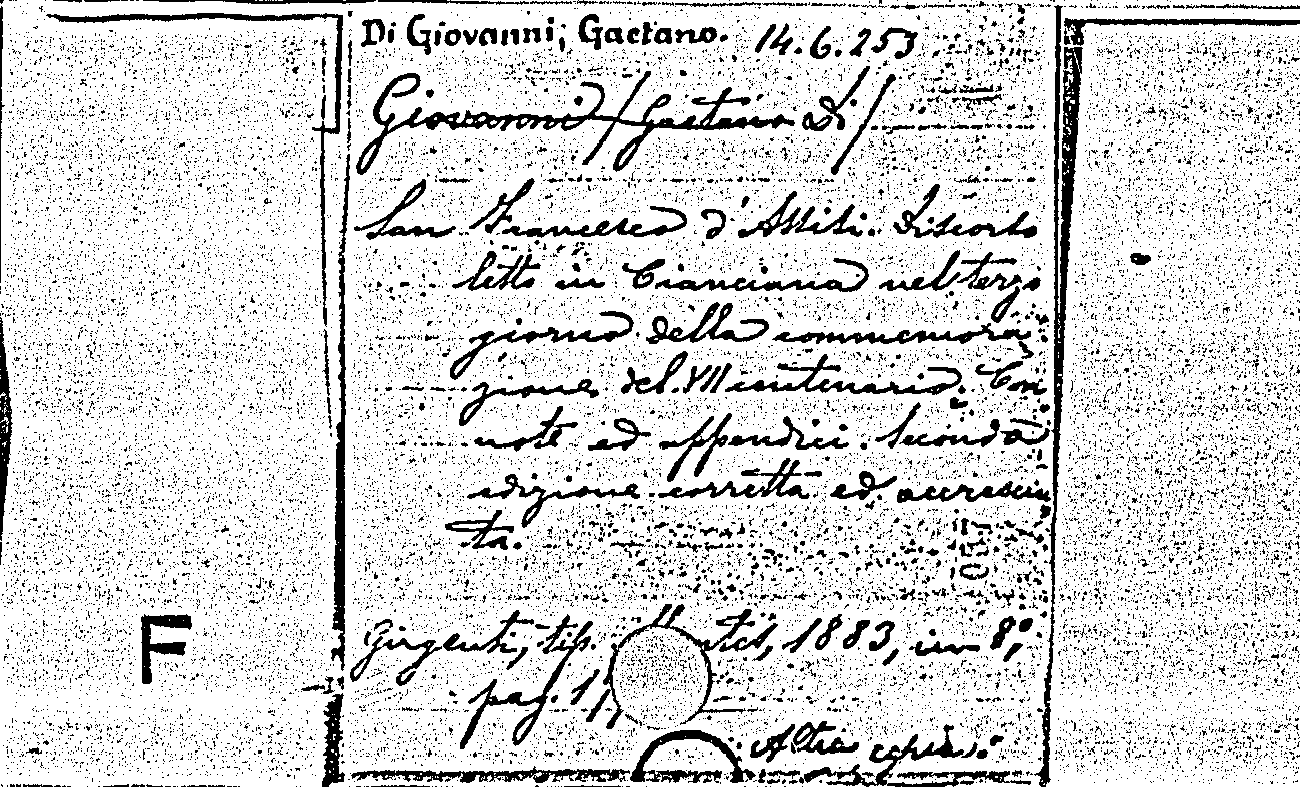 Di Giovanni, Gaetano. 14.6.253
Giovanni / Gaetano Di /
San Francesco d'Assisi. Discorso
letto in Cianciana nel terzo
giorno della commemora-
zione del VII centenario. Con
note ed appendici. Seconda
edizione corretta ed accresciu
ta.
Girgenti, tip. 1883, in 8°,
pag.
Altra copia:
F